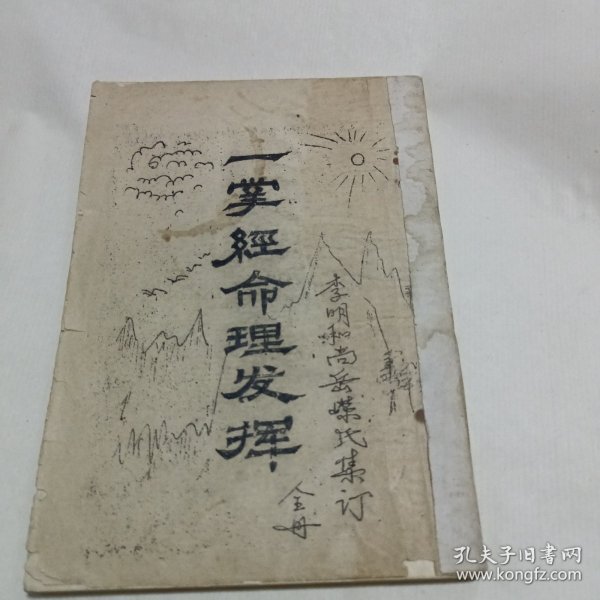 一掌經命理发挥
李明和尚岳嵘氏集订
全册
孔夫子旧书网
www.kongfz.com